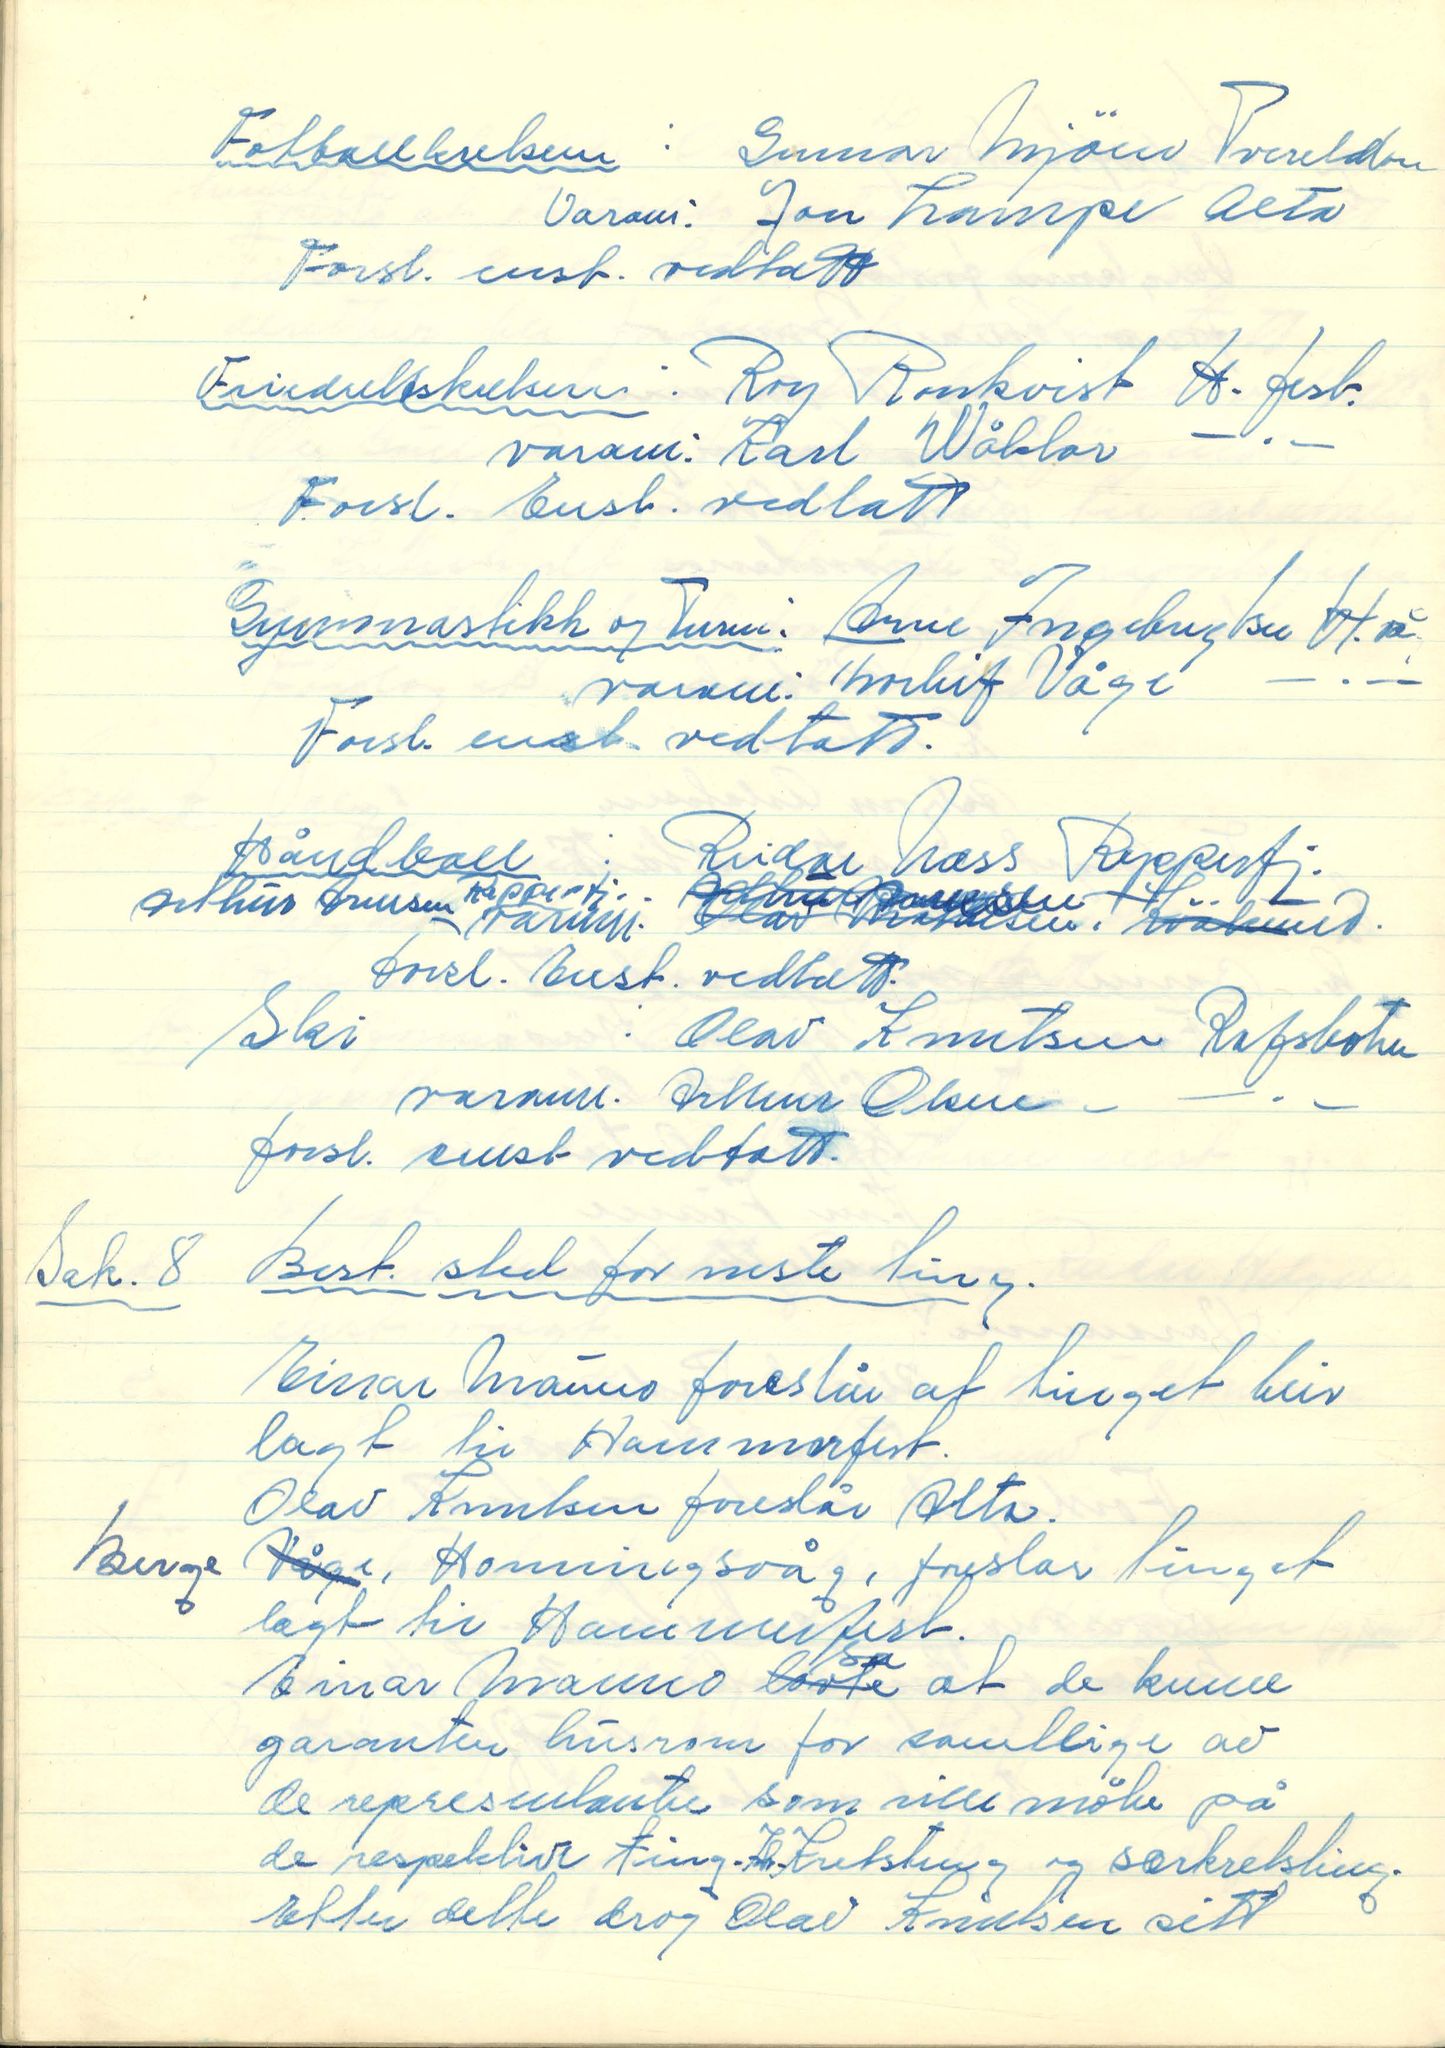 Fotballkretsen : Gunnar Mjöen Tverelvdalen
Varam: Jon Trampe Alta
Forsl. enst. vedtatt
Friidrettskretsen : Roy Ronkvist H. fest.
varam: Karl Wåhlar — . —
Forsl. Enst. vedtatt
Gymnastikk og Turn: Arne Ingebrigtsen H.v.
varam: Thorleif Våge — . —
Forsl. enst. vedtatt.
Håndball : Reidar Næss Repperfj.
Arthur Arnesen Repperfj.
varam.
forsl. Enst. vedtatt.
Ski : Olav Knutsen Rafsbotn
varam. Arthur Olsen — . —
forsl. enst vedtatt.
Sak. 8 Best. sted for neste ting.
Einar Manno foreslår at tinget blir
lagt til Hammerfest.
Olav Knutsen foreslår Alta.
Berge Våge, Honningsvåg, foreslar tinget
lagt til Hammerfest.
sa
Einar Manno lovte at de kunne
garantere husrom for samtlige av
de representanter som ville møte på
de respektive ting. Kretsting og særkretsting.
Etter dette drog Olav Knutsen sitt